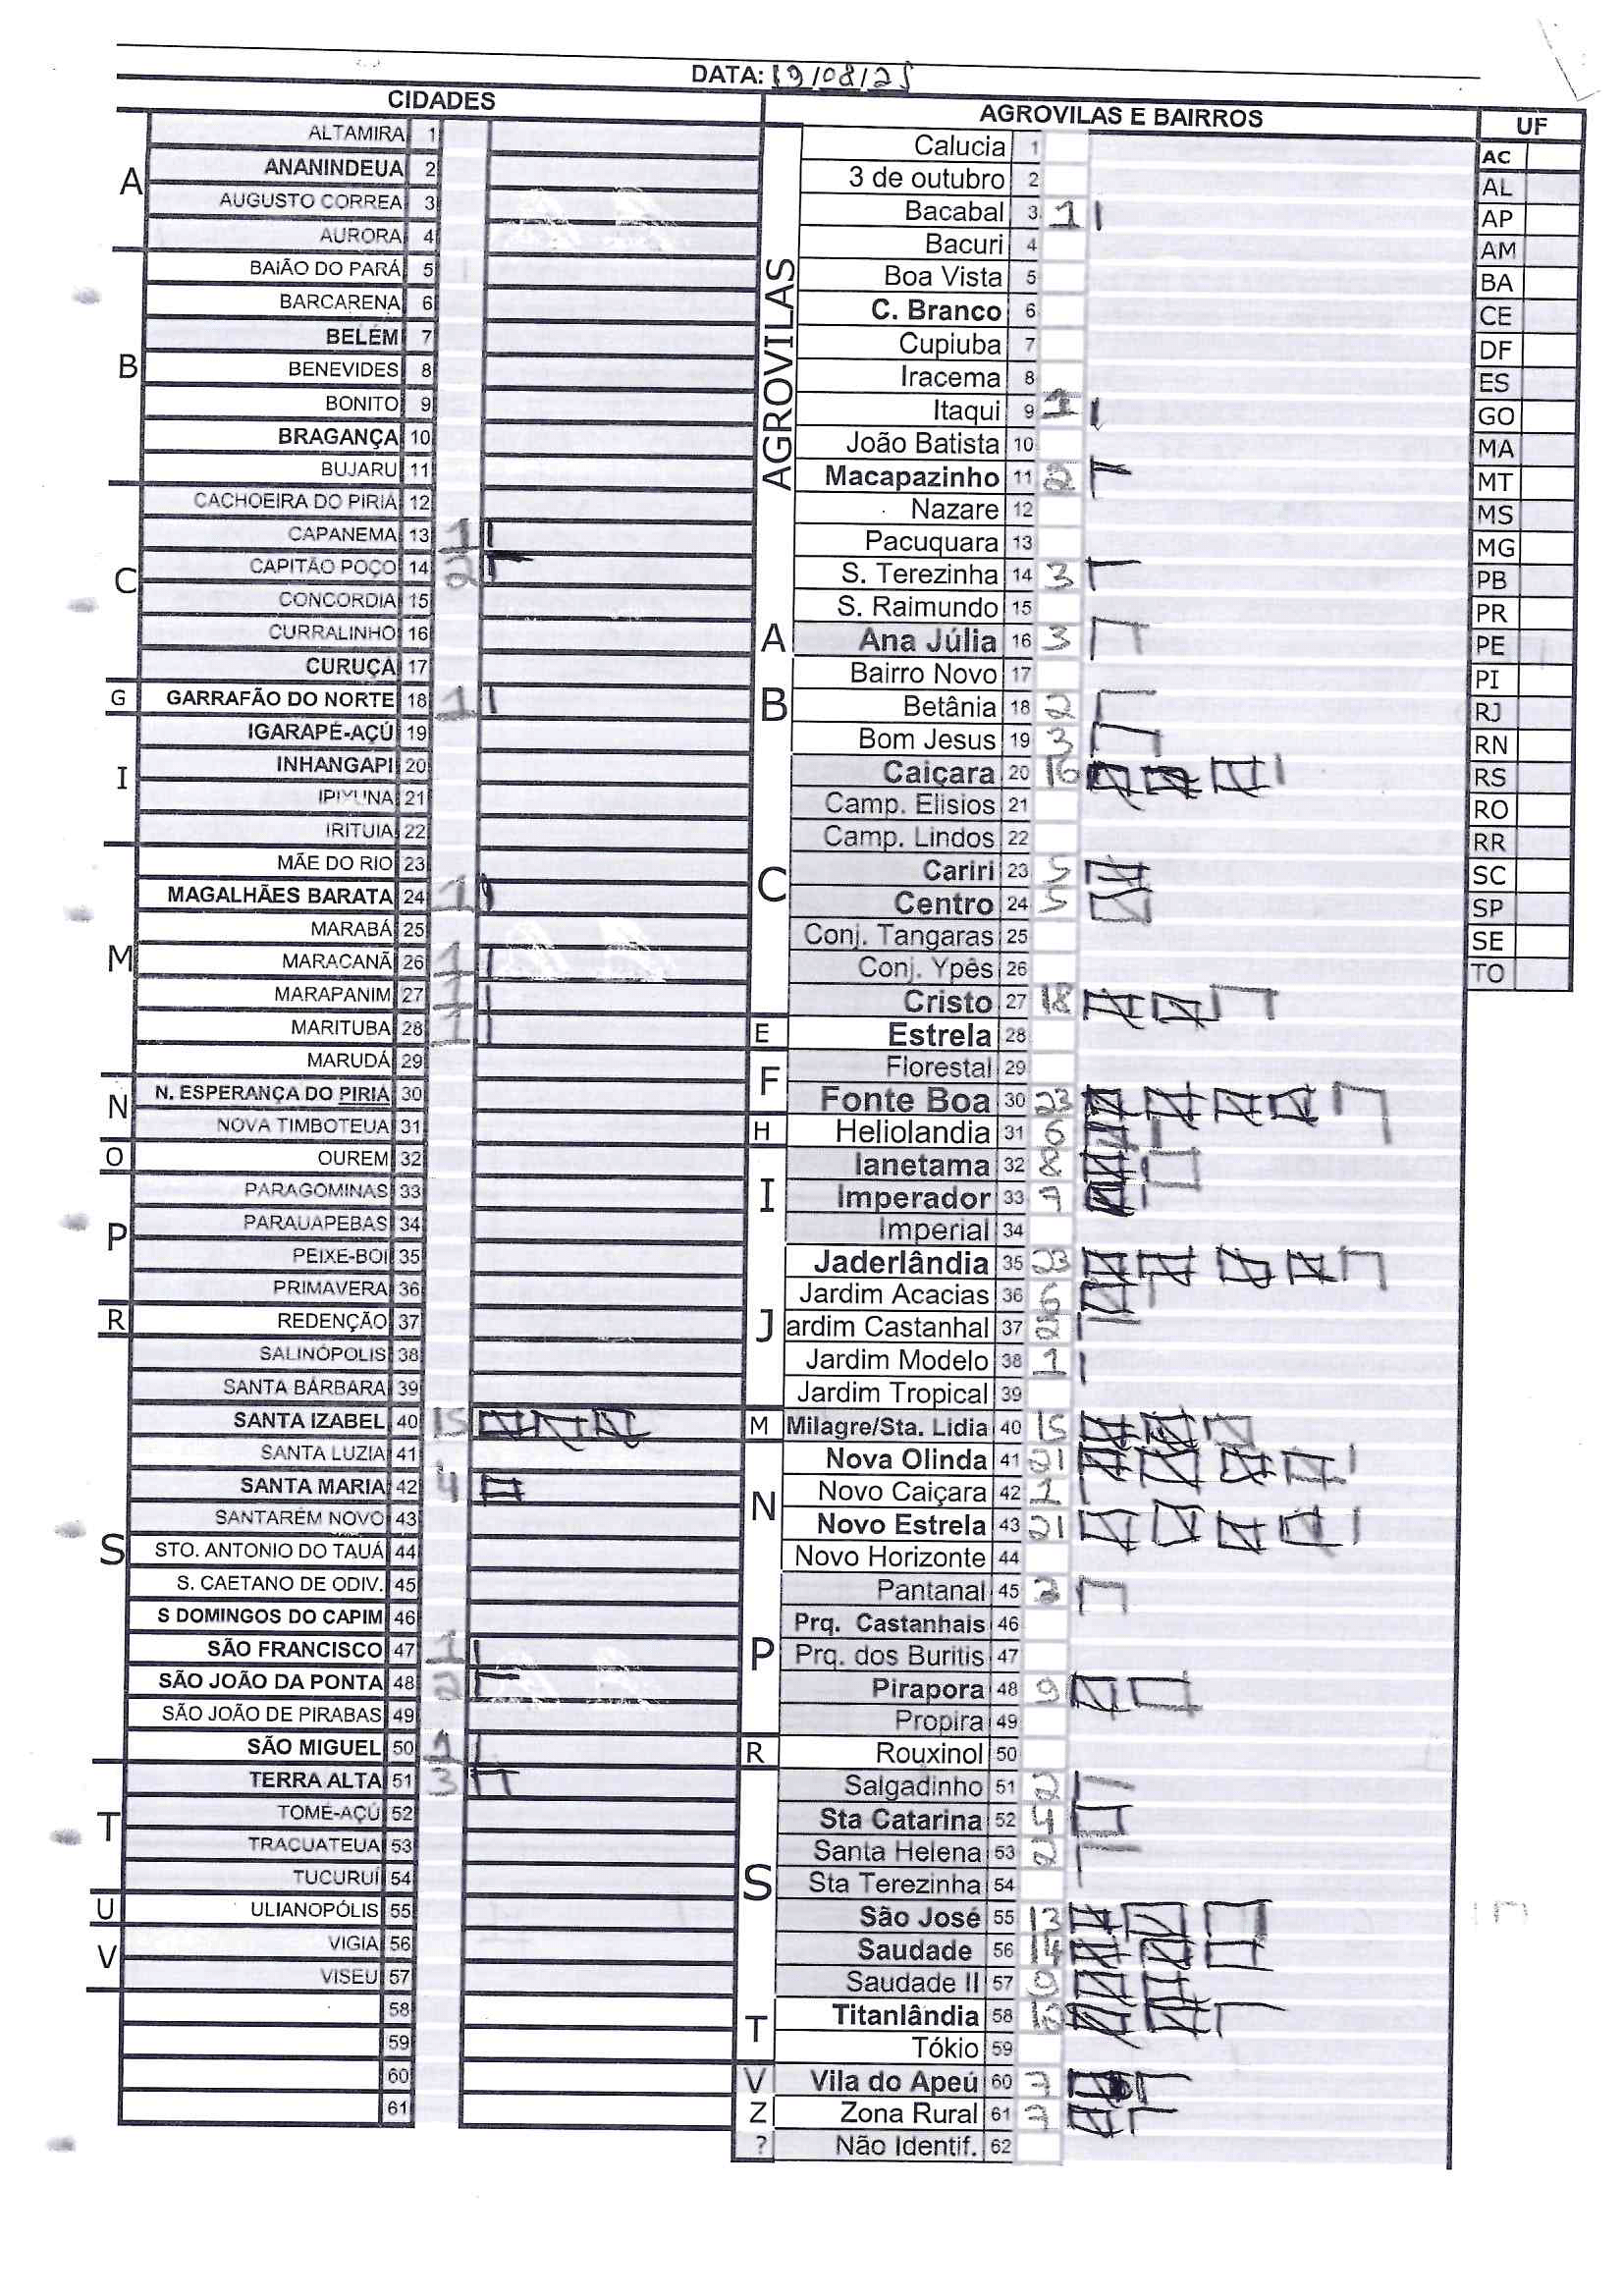 DATA: 19/08/25
CIDADES
A
ALTAMIRA 1
ANANINDEUA 2
AUGUSTO CORREA 3
AURORA 4
B
BAIÃO DO PARÁ 5
BARCARENA 6
BELÉM 7
BENEVIDES 8
BONITO 9
BRAGANÇA 10
BUJARU 11
C
CACHOEIRA DO PIRIÁ 12
CAPANEMA 13 1
CAPITÃO POÇO 14 2
CONCORDIA 15
CURRALINHO 16
CURUÇÁ 17
G
GARRAFÃO DO NORTE 18 1
I
IGARAPÉ-AÇÚ 19
INHANGAPI 20
IPIXUNA 21
IRITUIA 22
M
MÃE DO RIO 23
MAGALHÃES BARATA 24 1
MARABÁ 25
MARACANÃ 26 1
MARAPANIM 27 1
MARITUBA 28 1
MARUDÁ 29
N
N. ESPERANÇA DO PIRIÁ 30
NOVA TIMBOTEUA 31
O
OUREM 32
P
PARAGOMINAS 33
PARAUAPEBAS 34
PEIXE-BOI 35
PRIMAVERA 36
R
REDENÇÃO 37
S
SALINÓPOLIS 38
SANTA BÁRBARA 39
SANTA IZABEL 40 15
SANTA LUZIA 41
SANTA MARIA 42 4
SANTARÉM NOVO 43
STO. ANTONIO DO TAUÁ 44
S. CAETANO DE ODIV. 45
S DOMINGOS DO CAPIM 46
SÃO FRANCISCO 47 1
SÃO JOÃO DA PONTA 48 2
SÃO JOÃO DE PIRABAS 49
SÃO MIGUEL 50 1
T
TERRA ALTA 51 3
TOMÉ-AÇÚ 52
TRACUATEUA 53
TUCURUÍ 54
U
ULIANOPÓLIS 55
V
VIGIA 56
VISEU 57
58
59
60
61
AGROVILAS E BAIRROS
AGROVILAS
Calucia 1
3 de outubro 2
Bacabal 3 1
Bacuri 4
Boa Vista 5
C. Branco 6
Cupiuba 7
Iracema 8
Itaqui 9 1
João Batista 10
Macapazinho 11 2
Nazare 12
Pacuquara 13
S. Terezinha 14 3
S. Raimundo 15
A
Ana Júlia 16 3
B
Bairro Novo 17
Betânia 18 2
Bom Jesus 19 3
C
Caiçara 20 16
Camp. Elisios 21
Camp. Lindos 22
Cariri 23 5
Centro 24 5
Conj. Tangaras 25
Conj. Ypês 26
Cristo 27 18
E
Estrela 28
F
Florestal 29
Fonte Boa 30 23
H
Heliolandia 31 6
I
Ianetama 32 8
Imperador 33 7
Imperial 34
J
Jaderlândia 35 23
Jardim Acacias 36 6
ardim Castanhal 37 2
Jardim Modelo 38 1
Jardim Tropical 39
M
Milagre/Sta. Lidia 40 15
N
Nova Olinda 41 21
Novo Caiçara 42 1
Novo Estrela 43 21
Novo Horizonte 44
P
Pantanal 45
Prq. Castanhais 46
Prq. dos Buritis 47
Pirapora 48 9
Propira 49
R
Rouxinol 50
S
Salgadinho 51 2
Sta Catarina 52 4
Santa Helena 53 2
Sta Terezinha 54
São José 55
Saudade 56 14
Saudade II 57
T
Titanlândia 58
Tókio 59
V
Vila do Apeú 60 7
Z
Zona Rural 61 7
?
Não Identif. 62
UF
AC
AL
AP
AM
BA
CE
DF
ES
GO
MA
MT
MS
MG
PB
PR
PE
PI
RJ
RN
RS
RO
RR
SC
SP
SE
TO